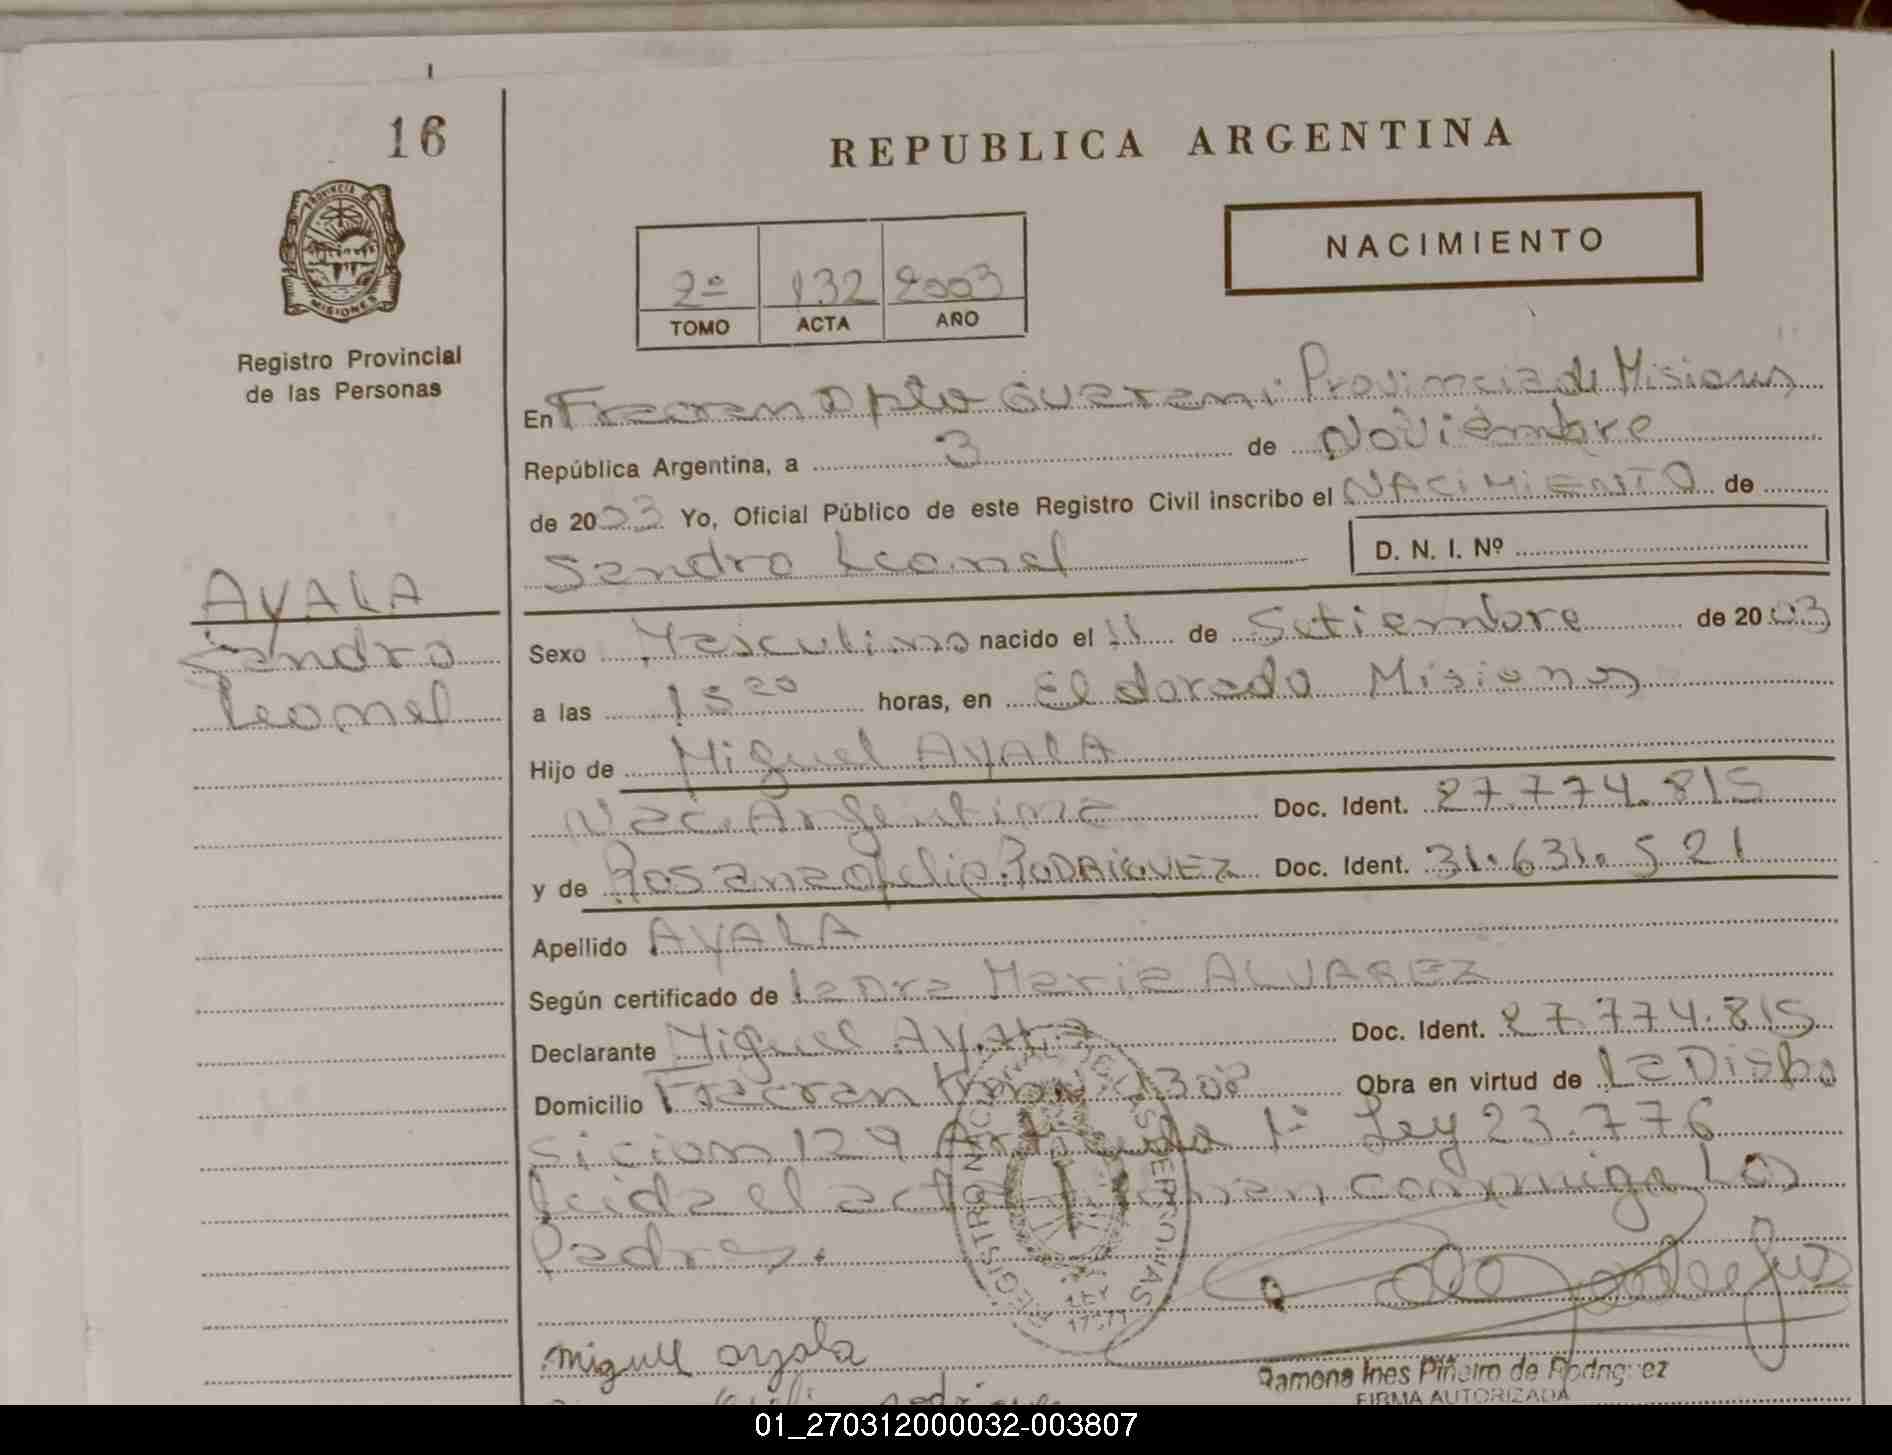 16
REPUBLICA ARGENTINA
NACIMIENTO
2º 132 2003
TOMO ACTA AÑO
PROVINCIA DE
MISIONES
Registro Provincial
de las Personas
En Fracran Dpto Guarani Provincia de Misiones
República Argentina, a 3 de Noviembre
de 2003 Yo, Oficial Público de este Registro Civil inscribo el NACIMIENTO de
Sandro Leonel D. N. I. Nº
AYALA
Sandro
Leonel
Sexo Masculino nacido el 11 de Setiembre de 2003
a las 15 20 horas, en Eldorado Misiones
Hijo de Miguel AYALA
Nac. Argentina Doc. Ident. 27.774.815
y de Rosana RODRIGUEZ Doc. Ident. 31.631.521
Apellido AYALA
Según certificado de Maria ALVAREZ
Declarante Miguel AYALA Doc. Ident. 27.774.815
Domicilio Fracran Obra en virtud de La Dispo
sicion 129 Articulo 1º Ley 23.776
leida el acta firman conmigo Los
Padres.
LEY
miguel ayala
Ramona Ines Piñeiro de Rodriguez
FIRMA AUTORIZADA
01_270312000032-003807